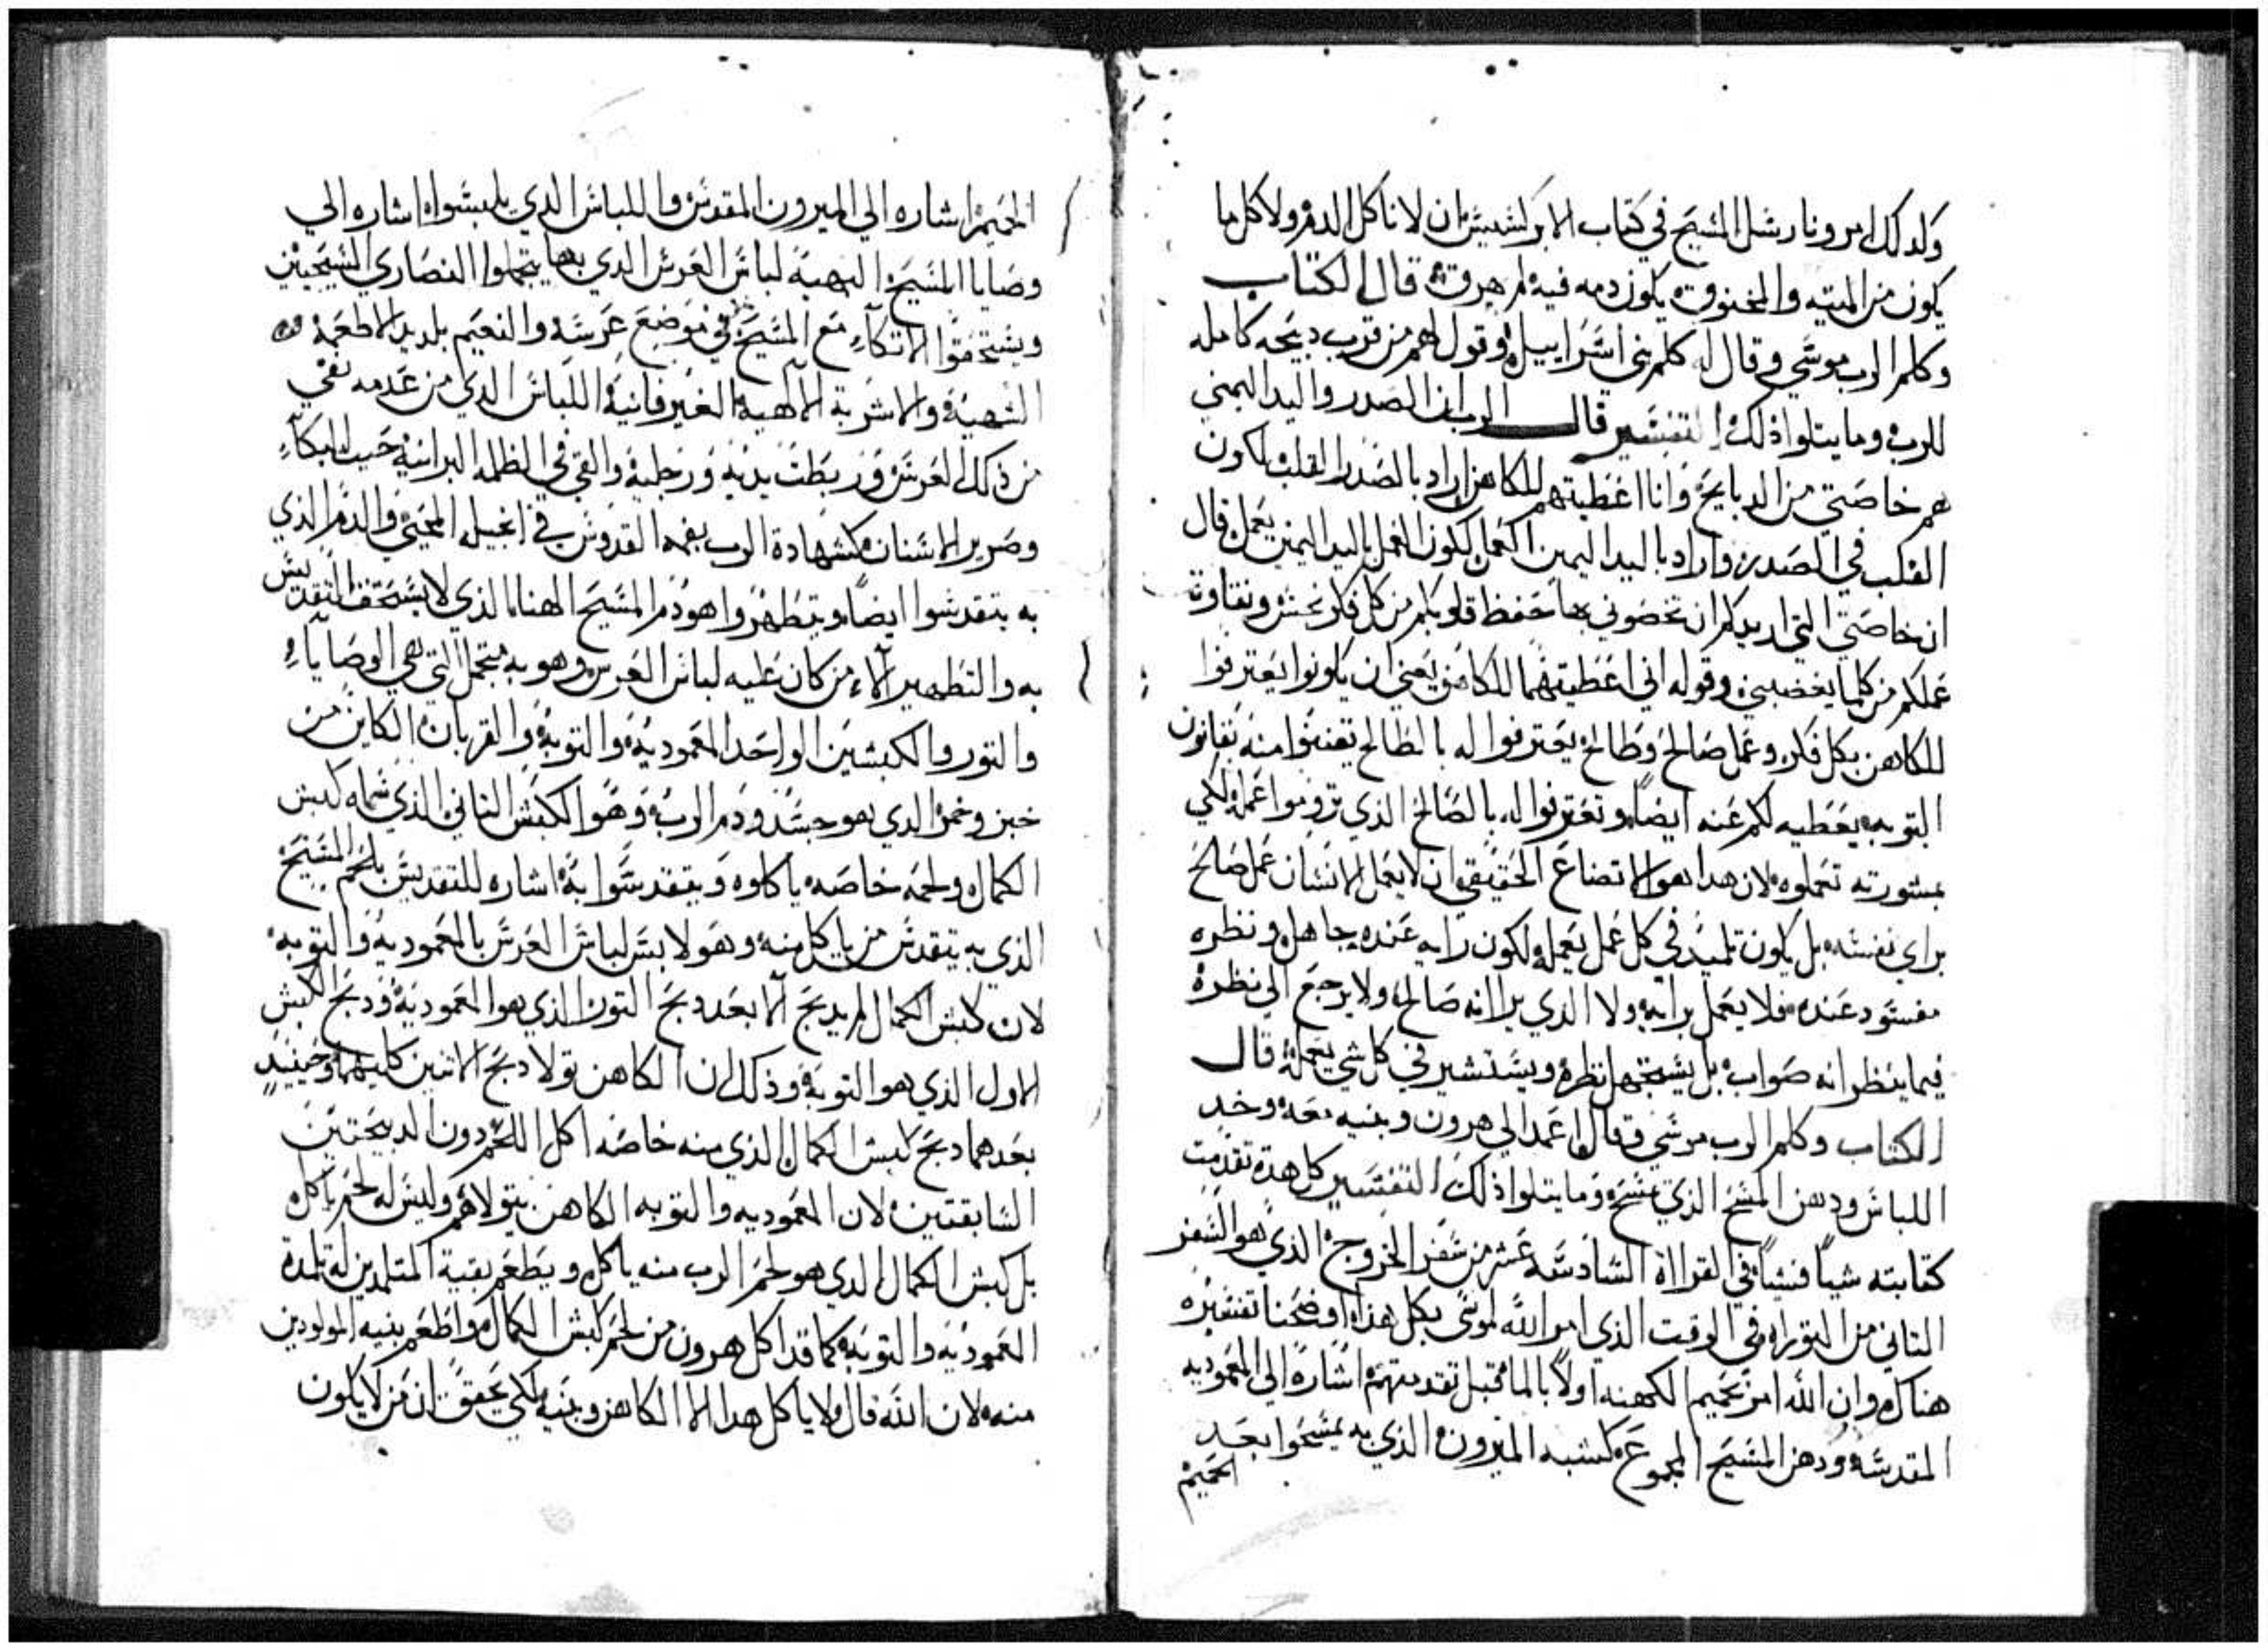 ولدلك امرونا رسل المسيح في كتاب الابركسيس ان لا ناكل الدم ولا كل ما
يكون من الميته والمخنوق يكون دمه فيه لم يهرق قال الكتاب
وكلم الرب موسي وقال له كلم بني اسراييل وقول لهم من قرب دبيحه كامله
للرب وما يتلوا ذلك التفسير قال الرب ان الصدر واليد اليمني
هم خاصتي من الدبايح وانا اعطيتهم للكاهن اراد بالصدر القلب لكون
القلب في الصدر واراد باليد اليمين العمل لكون العمل باليد اليمين يعمل قال
ان خاصتي التي اريدكم ان تخصوني بها حفظ قلوبكم من كل فكر نجس ونقاوة
عملكم من كلما يغضبني وقوله اني اعطيتهما للكاهن يعني ان يكونوا يعترفوا
للكاهن بكل فكر وعمل صالح وطالح يعترفوا له بالطالح تعتقوا منه بقانون
التوبه يعطيه لكم عنه ايضا وتعترفوا له بالصالح الذي تروموا عمله لكي
بمشورته تعملوه لان هدا هو الاتضاع الحقيقي ان لا يعمل الانسان عمل صالح
براي نفسه بل يكون تلميد في كل عمل يعمله لكون رايه عنده جاهل ونظره
مفسود عنده فلا يعمل برايه ولا الدي يرا انه صالح ولا يرجع الي نظره
فيما ينظر انه صواب بل يستجهل نظره ويستشير في كل شي يعمله قال
الكتاب وكلم الرب موسي وقال اعمد الي هرون وبنيه معه وخد
اللباس ودهن المسح الذي تمسح وما يتلوا ذلك التفسير كل هده تقدمت
كتابته شياً فشياً في القرااة السادسه عشر من سفر الخروج الذي هو السفر
التاني من التوراه في الوقت الذي امر الله لموسي بكل هذا اوضحنا تفسيره
هناك وان الله امر بحميم الكهنه اولاً بالما قبل تقدمتهم اشارة الي المعموديه
المقدسه ودهن المسيح المجموع كشبه الميرون الذي به يمسحوا بعد
الحميم
الحميم اشاره الي الميرون المقدس واللباس الدي يلبسواه اشاره الي
وصايا المسيح البهيه لباس العرس الدي بها يتجملوا النصاري المسيحيين
ويستحقوا الاتكاء مع المسيح في موضع عرسه والنعيم بلديد الاطعمه
الشهيه والاشربة الالهيه الغير فانيه اللباس الدي من عدمه نفي
من ذلك العرس وربطت يديه ورجليه والقي في الظلمه البرانيه حيث البكاء
وصرير الاسنان كشهادة الرب بفمه القدوس في انجيله المحيي والدم الذي
به يتقدسوا ايضاً ويتطهروا هو دم المسيح الهنا الذي لا يستحق التقديس
به والتطهير الا من كان عليه لباس العرس وهو به متجمل التي هي الوصايا
والتور والكبشين الواحد المعموديه والتوبه والقربان الكاين من
خبز وخمر الدي هو جسد ودم الرب وهو الكبش التاني الذي سماه كبش
الكمال ولحمه خاصه ياكلوه ويتقدسوا به اشاره للتقديس بلحم المسيح
الذي به يتقدس من ياكل منه وهو لابس لباس العرس بالمعموديه والتوبه
لان كبش الكمال لم يدبح الا بعد دبح التور الذي هو المعموديه ودبح الكبش
الاول الذي هو التوبه وذلك ان الكاهن تولا دبح الاتنين كليهما وحينيد
بعدهما دبح كبش الكمال الذي منه خاصه اكل اللحم دون الدبيحتين
السابقتين لان المعموديه والتوبه الكاهن يتولاهم وليس له لحم ياكله
بل كبش الكمال الدي هو لحم الرب منه ياكل ويطعم بقية المتلمدين له تلمدة
المعموديه والتوبه كما قد اكل هرون من لحم كبش الكمال واطعم بنيه المولودين
منه لان الله قال ولا ياكل هدا الا الكاهن وبنيه لكي يحقق ان من لا يكون